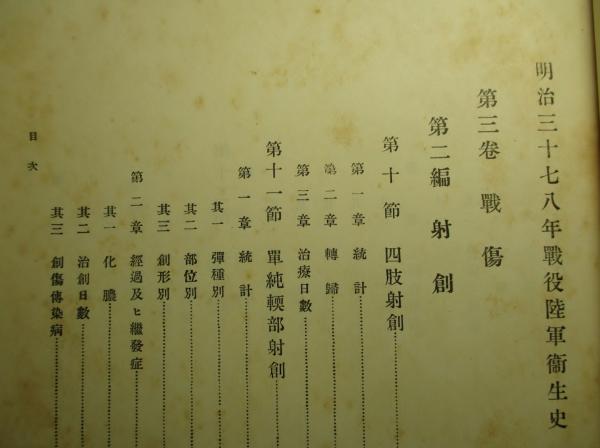 明治三十七八年戰役陸軍衞生史
第三卷 戰傷
第二編 射創
第十節 四肢射創
第一章 統計
第二章 轉歸
第三章 治療日數
第十一節 單純輭部射創
第一章 統計
其一 彈種別
其二 部位別
其三 創形別
第二章 經過及ヒ繼發症
其一 化膿
其二 治創日數
其三 創傷傳染病
目次